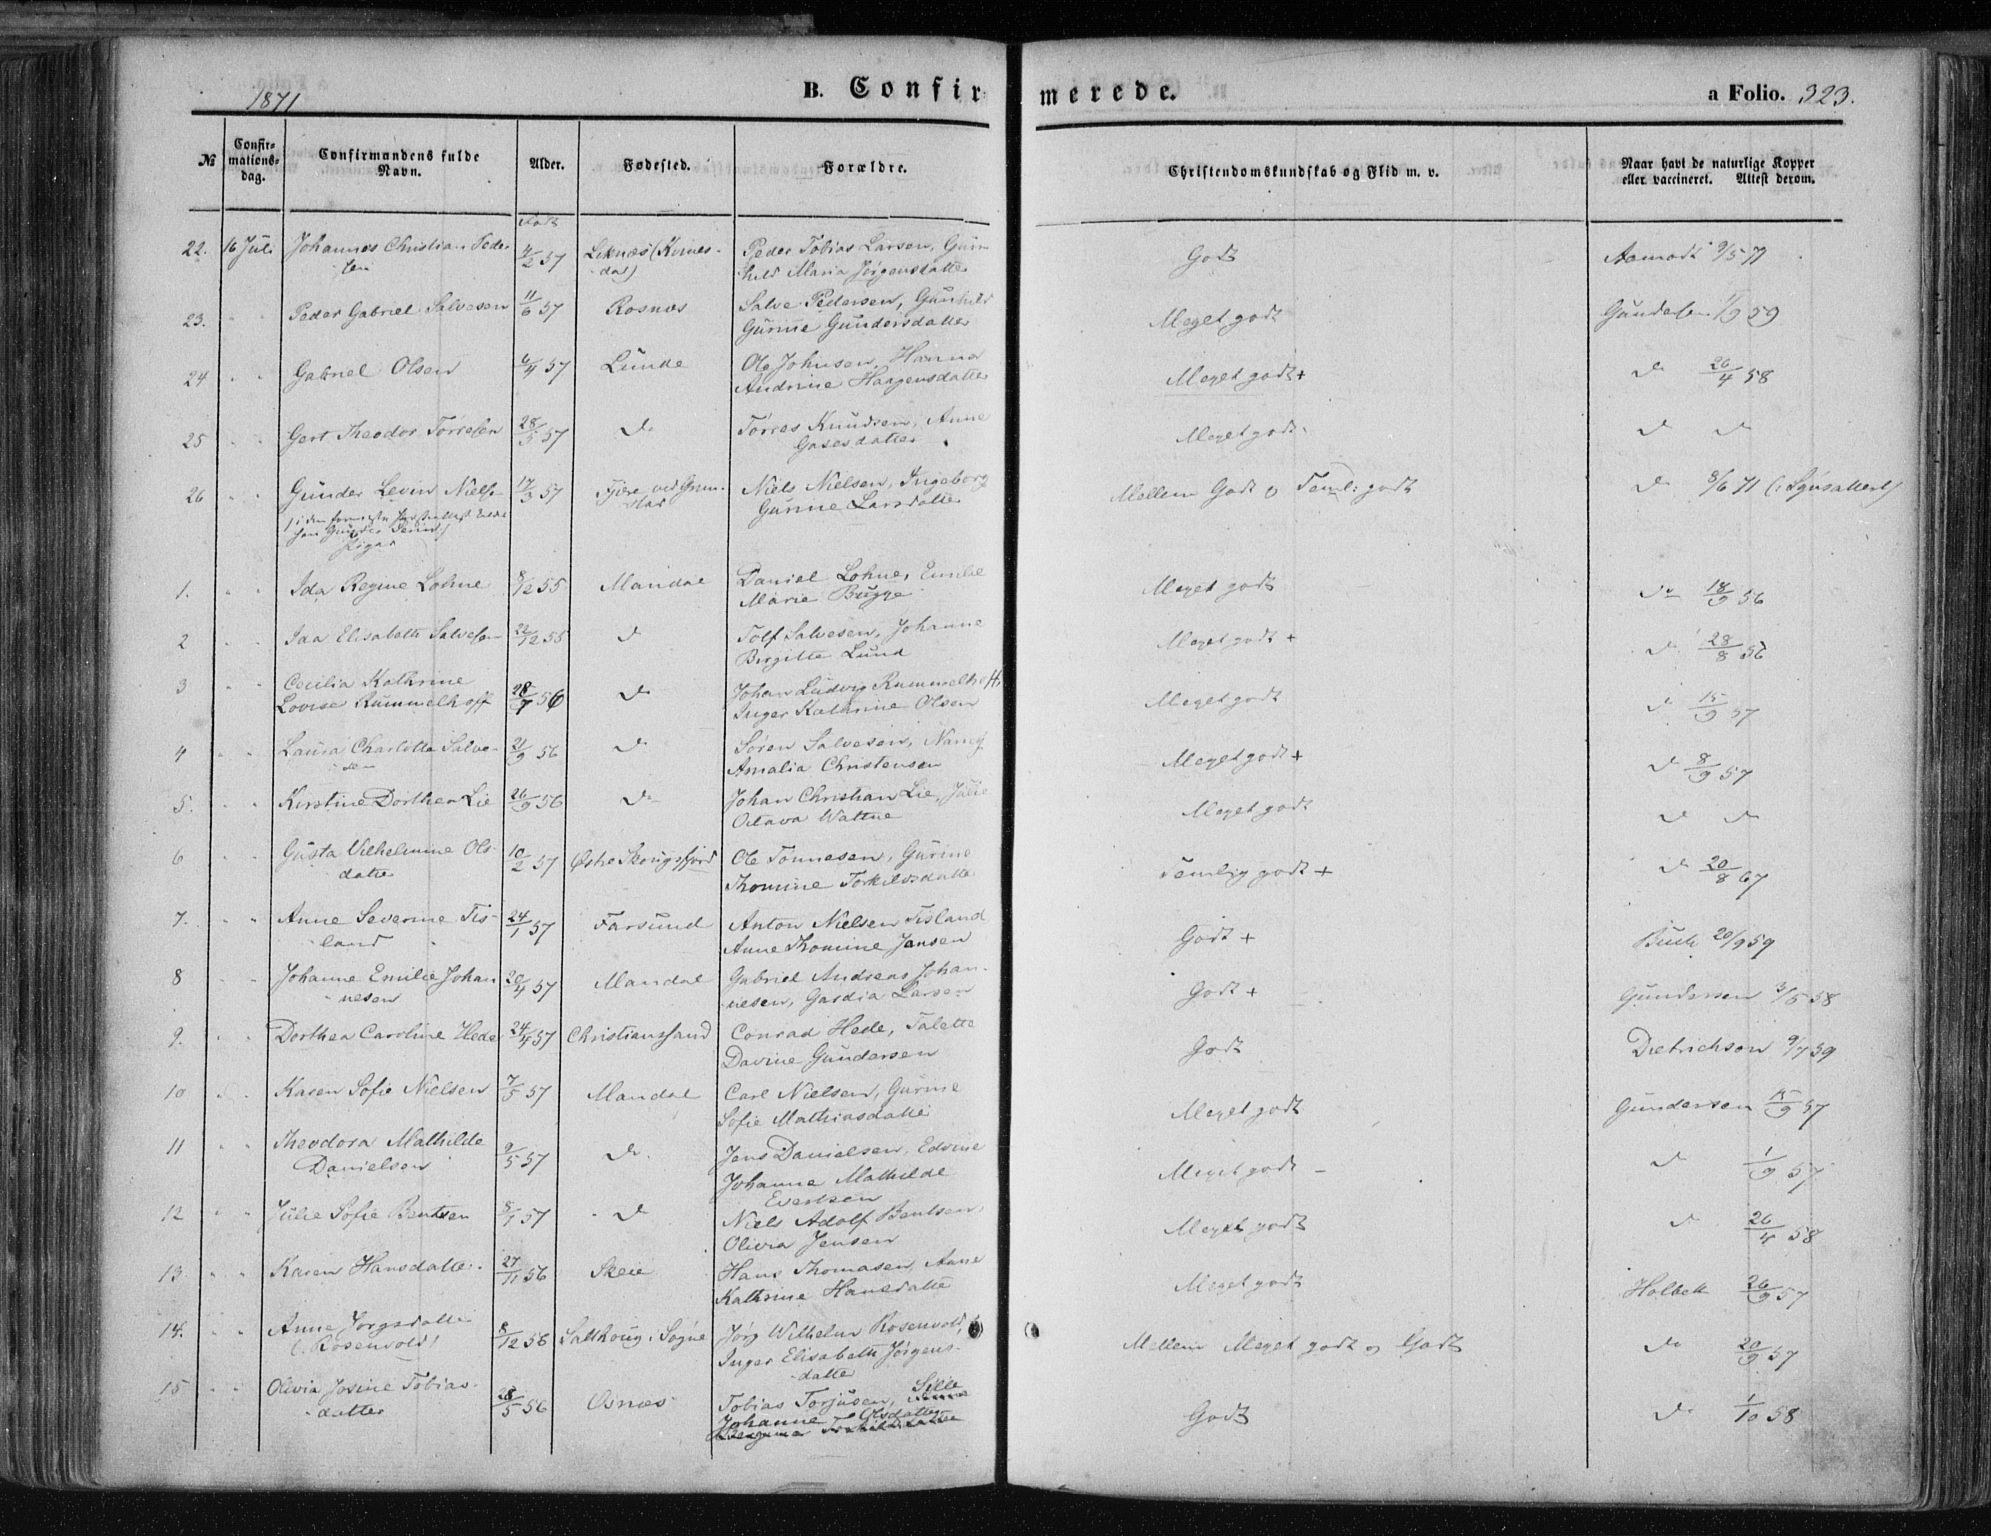 1871 B. Confirmerede. a Folio. 323.
№ Confirmationsdag. Confirmandens fulde Navn. Alder. Fødested. Forældre. Christendomskundskab og Flid m. v. Naar havt de naturlige Kopper eller vaccineret. Attest derom.
født
22. 16 Juli Johannes Christian Peder- 4/2 57 Leknæs (Kvines- Peder Tobias Larsen, Gun- Godt Aamodt 9/5 71
sen dal) hild Maria Jørgensdatter
23. " " Peder Gabriel Salvesen 11/6 57 Rosnæs Salve Pedersen, Gunhild Meget godt Gundersen 1/9 59
Gurine Gundersdatter
24 " " Gabriel Olsen 4/4 57 Lunde Ole Johnsen, Hanna Meget godt + do 26/4 58
Andrine Haagensdatter
25 " " Gert Theodor Torresen 28/5 57 do Torres Knudsen, Anne Meget godt do do
Gasesdatter
26 " " Gunder Levin Niels- 17/3 57 Fjære ved Grim- Niels Nielsen, Ingeborg Mellem Godt og Temli: godt do 8/6 71
stad Gurine Larsdatter
1. " " Ida Regine Lohne 8/12 55 Mandal Daniel Lohne, Emilie Meget godt do 18/9 56
Marie Bugge
2 " " Ida Elisabeth Salvesen 22/12 55 do Tolf Salvesen, Johanne Meget godt + do 28/8 56
Birgitte Lund
3 " " Cecilia Kathrine 28/7 56 do Johan Ludvig Rummelhoff, Meget godt do 15/9 57
Lovise Rummelhoff Inger Kathrine Olsen
4 " " Laura Charlotte Salve- 21/9 56 do Søren Salvesen, Nancy Meget godt + do 8/9 57
sen Amalia Christensen
5. " " Kirstine Dorthea Lie 26/9 56 do Johan Christian Lie, Julie Meget godt do do
Octava Wattne
6 " " Gusta Vilhelmine Ols- 10/2 57 Østre Skougsfjord Ole Tønnesen, Gurine Temlig godt + do 20/8 67
datter Thomine Torkilsdatter
7. " " Anne Severine Tis- 24/1 57 Farsund Anton Nielsen Tisland Godt + Buch 20/9 59
land Anne Thomine Jansen
8 " " Johanne Emilie Johan- 20/4 57 Mandal Gabriel Andreas Johan- Godt + Gundersen 3/5 58
nesen nesen, Gardia Larsen
9. " " Dorthea Caroline Hede 24/4 57 Christianssand Conrad Hede, Talette Godt Dietrichson 9/7 59
Davine Gundersen
10 " " Karen Sofie Nielsen 7/5 57 Mandal Carl Nielsen, Gurine Meget godt Gundersen 15/9 57
Sofie Mathiasdatter
11 " " Theodora Mathilde 9/5 57 do Jens Danielsen, Edvine Meget godt - do 1/9 57
Danielsen Johanne Mathilde
Evertsen
12 " " Julie Sofie Bentsen 8/1 57 do Niels Adolf Bentsen, Meget godt do 26/4 58
Olivia Jensen
13 " " Karen Hansdatter 27/11 56 Skeie Hans Thomasen, Anne Meget godt Holbek 26/9 57
Kathrine Hansdatter
14. " " Anne Jørgsdatter 8/12 56 Salthoug i Søgne Jørg Wilhelm Rosenvold, Mellem Meget godt og Godt do 20/9 57
(Rosenvold) Inger Elisabeth Jørgens-
datter
15 " " Olivia Josine Tobias- 28/5 56 Osnæs Tobias Torjusen, Sille Godt do 1/10 58
datter Johanne Olsdatter